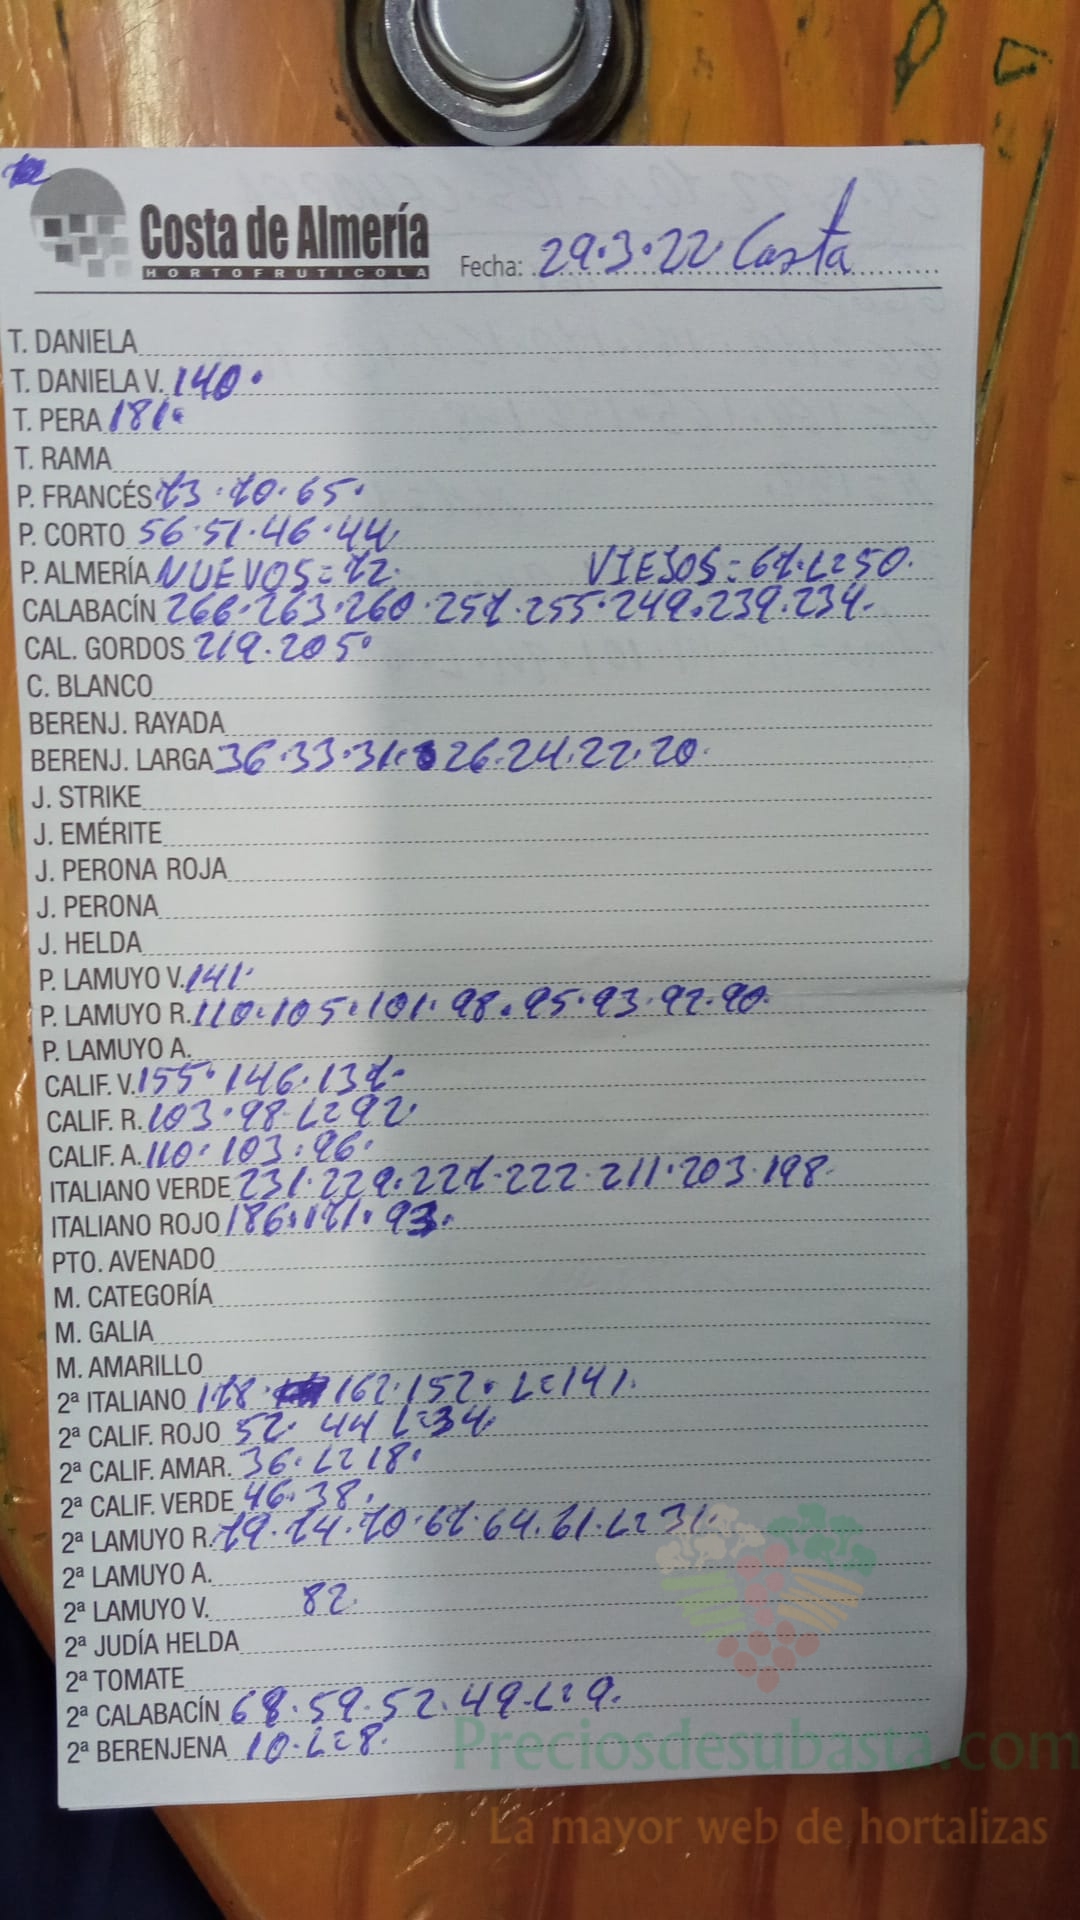 Costa de Almería
HORTOFRUTICOLA
Fecha: 29.3.22 Costa
T. DANIELA
T. DANIELA V. 140.
T. PERA 181.
T. RAMA
P. FRANCÉS 73.70.65.
P. CORTO 56.51.46.44.
P. ALMERÍA NUEVOS=72. VIEJOS=67.L=50.
CALABACÍN 266.263.260.257.255.249.239.234.
CAL. GORDOS 219.205.
C. BLANCO
BERENJ. RAYADA
BERENJ. LARGA 36.33.31. 26.24.22.20.
J. STRIKE
J. EMÉRITE
J. PERONA ROJA
J. PERONA
J. HELDA
P. LAMUYO V. 141.
P. LAMUYO R. 110.105.101.98.95.93.92.90.
P. LAMUYO A.
CALIF. V. 155.146.137.
CALIF. R. 103.98.L=92.
CALIF. A. 110.103.96.
ITALIANO VERDE 231.229.227.222.211.203.198.
ITALIANO ROJO 186.171.93.
PTO. AVENADO
M. CATEGORÍA
M. GALIA
M. AMARILLO
2ª ITALIANO 178. 162.152.L=141.
2ª CALIF. ROJO 52. 44 L=34.
2ª CALIF. AMAR. 36.L=18.
2ª CALIF. VERDE 46.38.
2ª LAMUYO R. 79.74.70.67.64.61.L=31.
2ª LAMUYO A.
2ª LAMUYO V. 82.
2ª JUDÍA HELDA
2ª TOMATE
2ª CALABACÍN 68.59.52.49.L=9.
2ª BERENJENA 10.L=8.
Preciosdesubasta.com
La mayor web de hortalizas